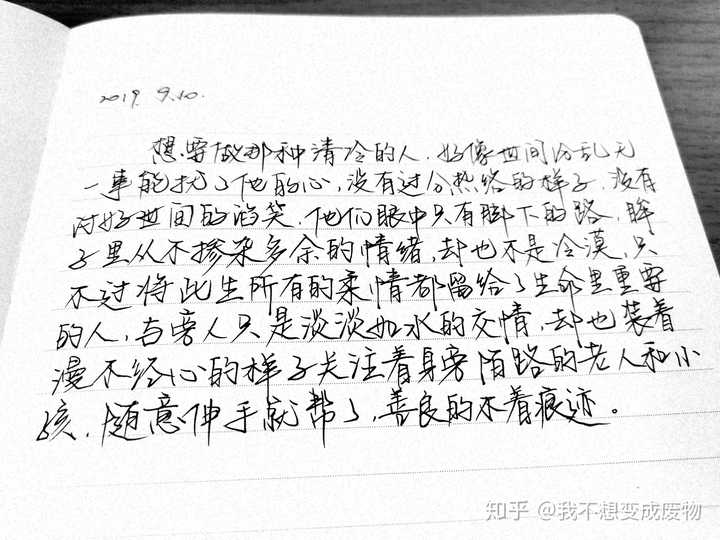 2019. 9.20.
想要做那种清冷的人.好像世间纷乱无
一事能扰了他的心,没有过分热络的样子.没有
讨好世间的谄笑.他们眼中只有脚下的路,眸
子里从不掺杂多余的情绪,却也不是冷漠,只
不过将此生所有的柔情都留给了生命里重要
的人,与旁人只是淡淡如水的交情,却也装着
漫不经心的样子关注着身旁陌路的老人和小
孩,随意伸手就帮了,善良的不着痕迹。
知乎 @我不想变成废物